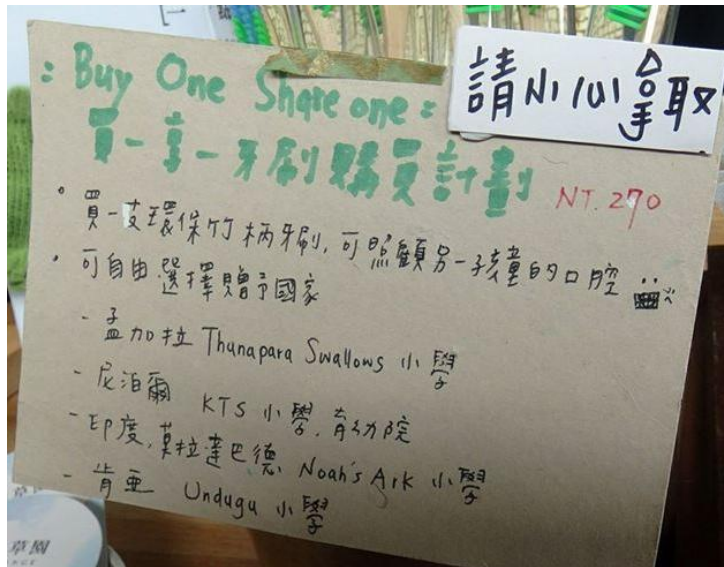 請小心拿取
: Buy One Share one :
買一享一牙刷購買計劃
NT. 270
。買一支環保竹柄牙刷, 可照顧另一孩童的口腔
。可自由選擇贈予國家
- 孟加拉 Thanapara Swallows 小學
- 尼泊爾 KTS 小學, 育幼院
- 印度, 莫拉達巴德 Noah's Ark 小學
- 肯亞 Undugu 小學
草園